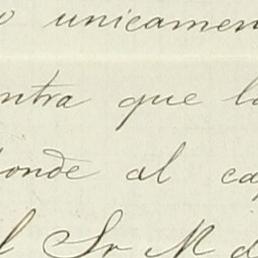 o unicamen
ntra que l
onde al ca
l Sr M d